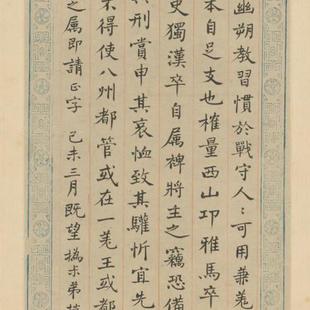 幽朔教習慣於戰守人:可用兼羌
本自足支也榷量西山邛雅馬卒
史獨漢卒自属裨將主之竊恐備
其刑賞申其哀恤致其驩忻宜先
不得使八州都管或在一羌王或都
之属即請正字 己未三月既望撝尗弟